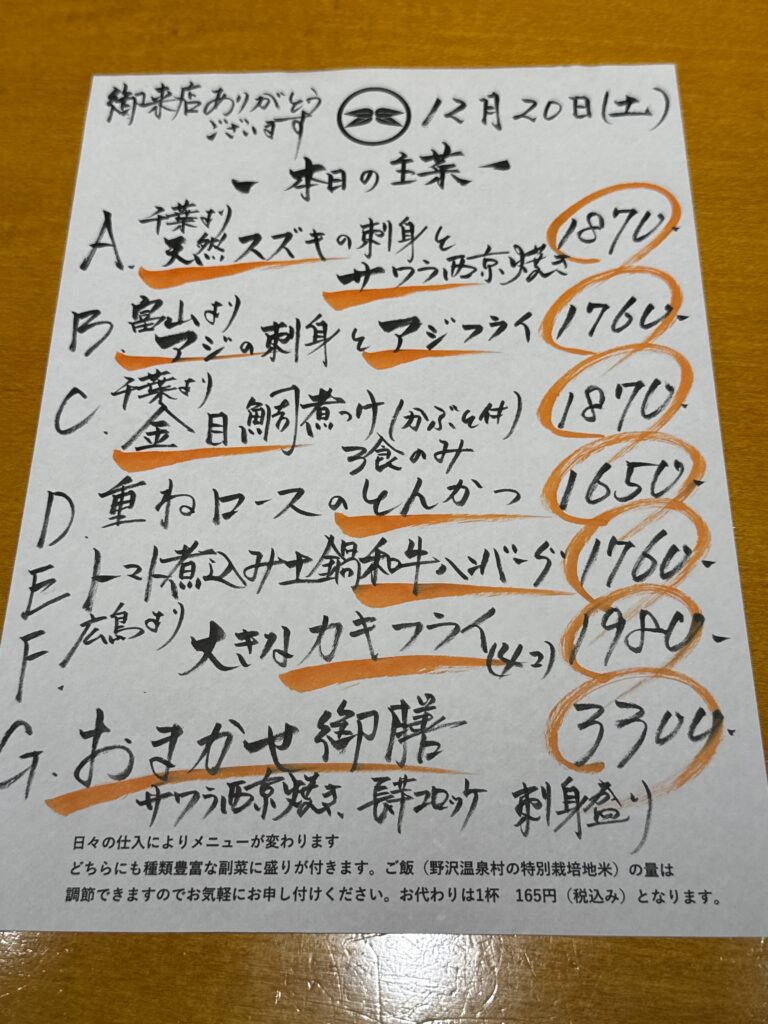 御来店ありがとう
ございます
12月20日(土)
- 本日の主菜 -
A. 千葉より
天然スズキの刺身と
サワラ西京焼き 1870-
B. 富山より
アジの刺身とアジフライ 1760-
C. 千葉より
金目鯛煮つけ(かぶと付) 1870-
3食のみ
D. 重ねロースのとんかつ 1650-
E. トマト煮込み土鍋和牛ハンバーグ 1760-
F. 広島より
大きなカキフライ(4コ) 1980-
G. おまかせ御膳 3300-
サワラ西京焼き、長芋コロッケ 刺身盛り
日々の仕入によりメニューが変わります
どちらにも種類豊富な副菜に盛りが付きます。ご飯(野沢温泉村の特別栽培地米)の量は
調節できますのでお気軽にお申し付けください。お代わりは1杯 165円(税込み)となります。